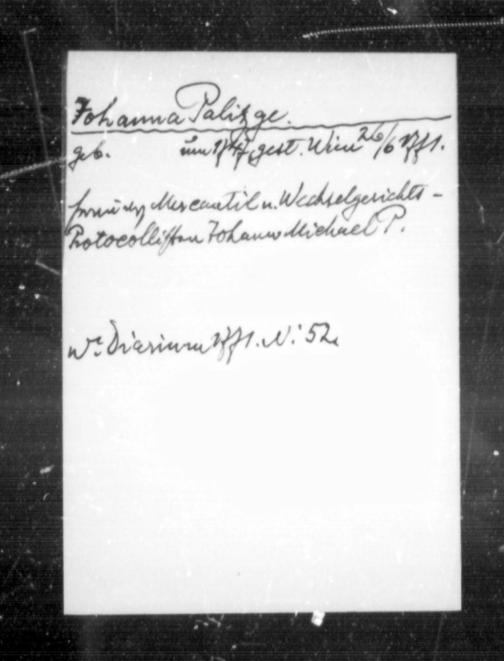 Johanna Palizge.
geb. um 1747, gest. Wien 26/6 1771.
Frau des Mercantil u. Wechselgerichts-
Protocollisten Johann Michael P.
Wr. Diarium 1771. Nr. 52.